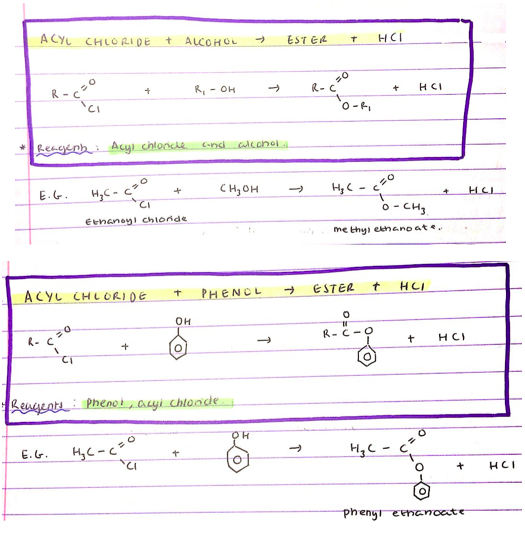 ACYL CHLORIDE + ALCOHOL → ESTER + HCl
R - C =O Cl + R₁ - OH → R - C =O O - R₁ + HCl
* Reagents : Acyl chloride and alcohol.
E.G. H₃C - C =O Cl + CH₃OH → H₃C - C =O O - CH₃ + HCl
Ethanoyl chloride methyl ethanoate.
ACYL CHLORIDE + PHENOL → ESTER + HCl
R - C =O Cl + OH → R - C - O O + HCl
Reagents : Phenol, acyl chloride.
E.G. H₃C - C =O Cl + OH → H₃C - C =O O + HCl
phenyl ethanoate